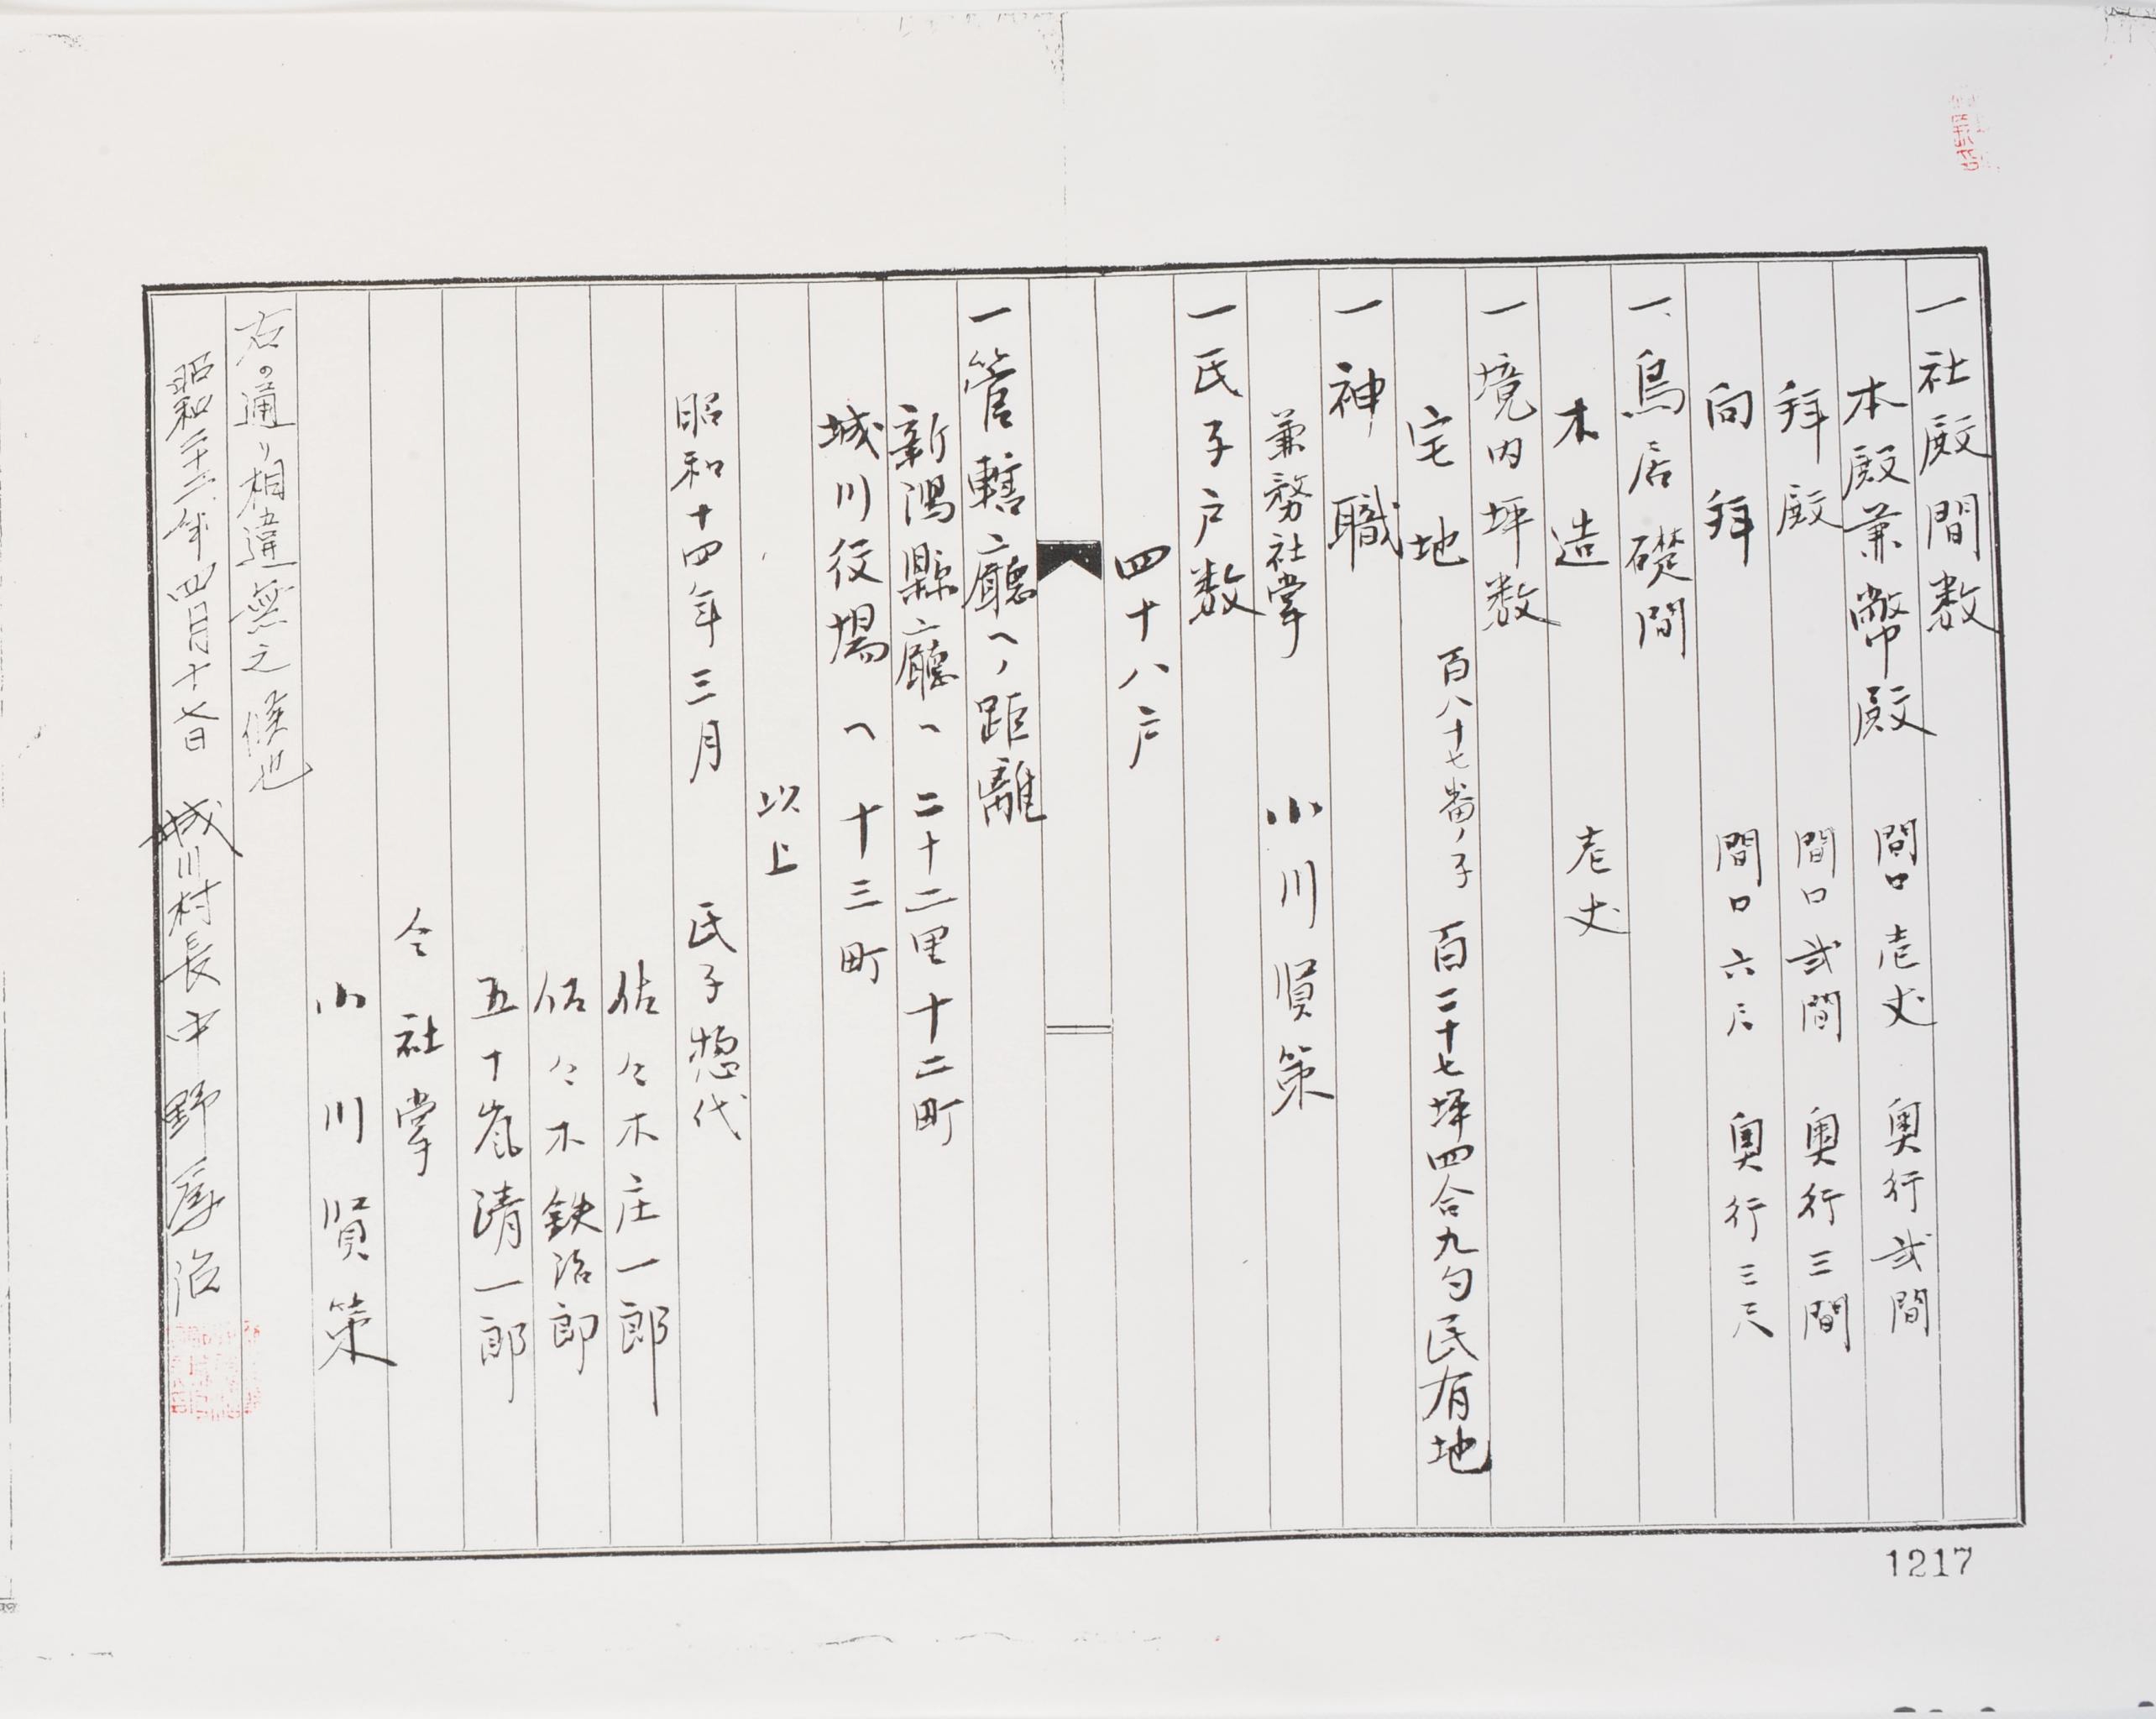 一社殿間数
本殿兼幣殿 間口壱丈 奥行弐間
拜殿 間口弐間 奥行三間
向拜 間口六尺 奥行三尺
一、鳥居礎間
木造 壱丈
一境内坪数
宅地 百八十七番ノ子 百二十七坪四合九勺民有地
一神職
兼務社掌 小川賢策
一氏子戸数
四十八戸
一管轄廳ヘノ距離
新潟縣廳ヘ 二十二里十二町
城川役場ヘ 十三町
以上
昭和十四年三月 氏子惣代
佐々木庄一郎
佐々木鉄治郎
五十嵐清一郎
仝社掌
小川賢策
右の通リ相違無之候也
昭和二十二年四月十七日 城川村長中野治
1217